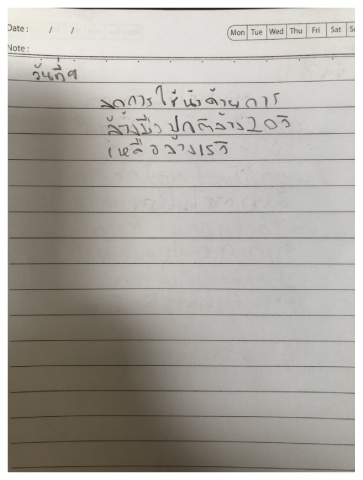 Date : / / Mon Tue Wed Thu Fri Sat
Note :
วันที่9
ลดการใช้น้ำด้วยการ
ล้างมือ ปกติล้าง20วิ
เหลือล้าง15วิ